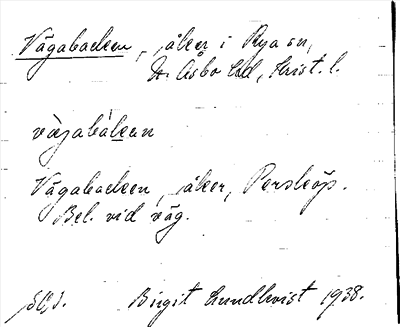 Vågabacken, åker i Rya sn,
N. Åsbo hd, Krist. l.
vàgabàkan
Vågabacken, åker, Perstorp.
Bel. vid väg.
Birgit Lundkvist 1938.